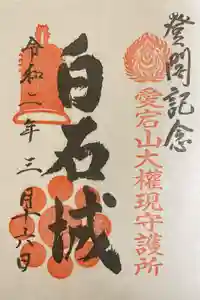 登閣記念
愛宕山大權現守護所
白石城
令和二年三月十六日